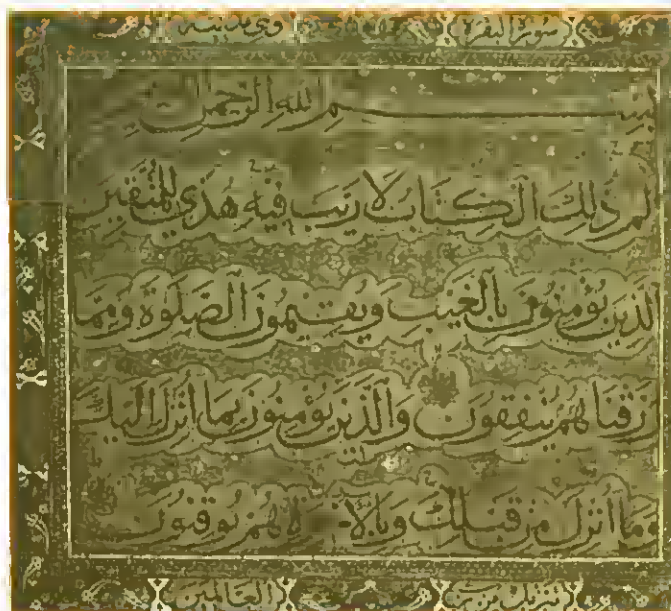 سورة البقرة وهي مدنية
بسم الله الرحمن
الم ذلك الكتاب لا ريب فيه هدى للمتقين
الذين يؤمنون بالغيب ويقيمون الصلوة ومما
رزقناهم ينفقون والذين يؤمنون بما أنزل اليك
وما أنزل من قبلك وبالآخرة هم يوقنون
تنزيل من رب العالمين